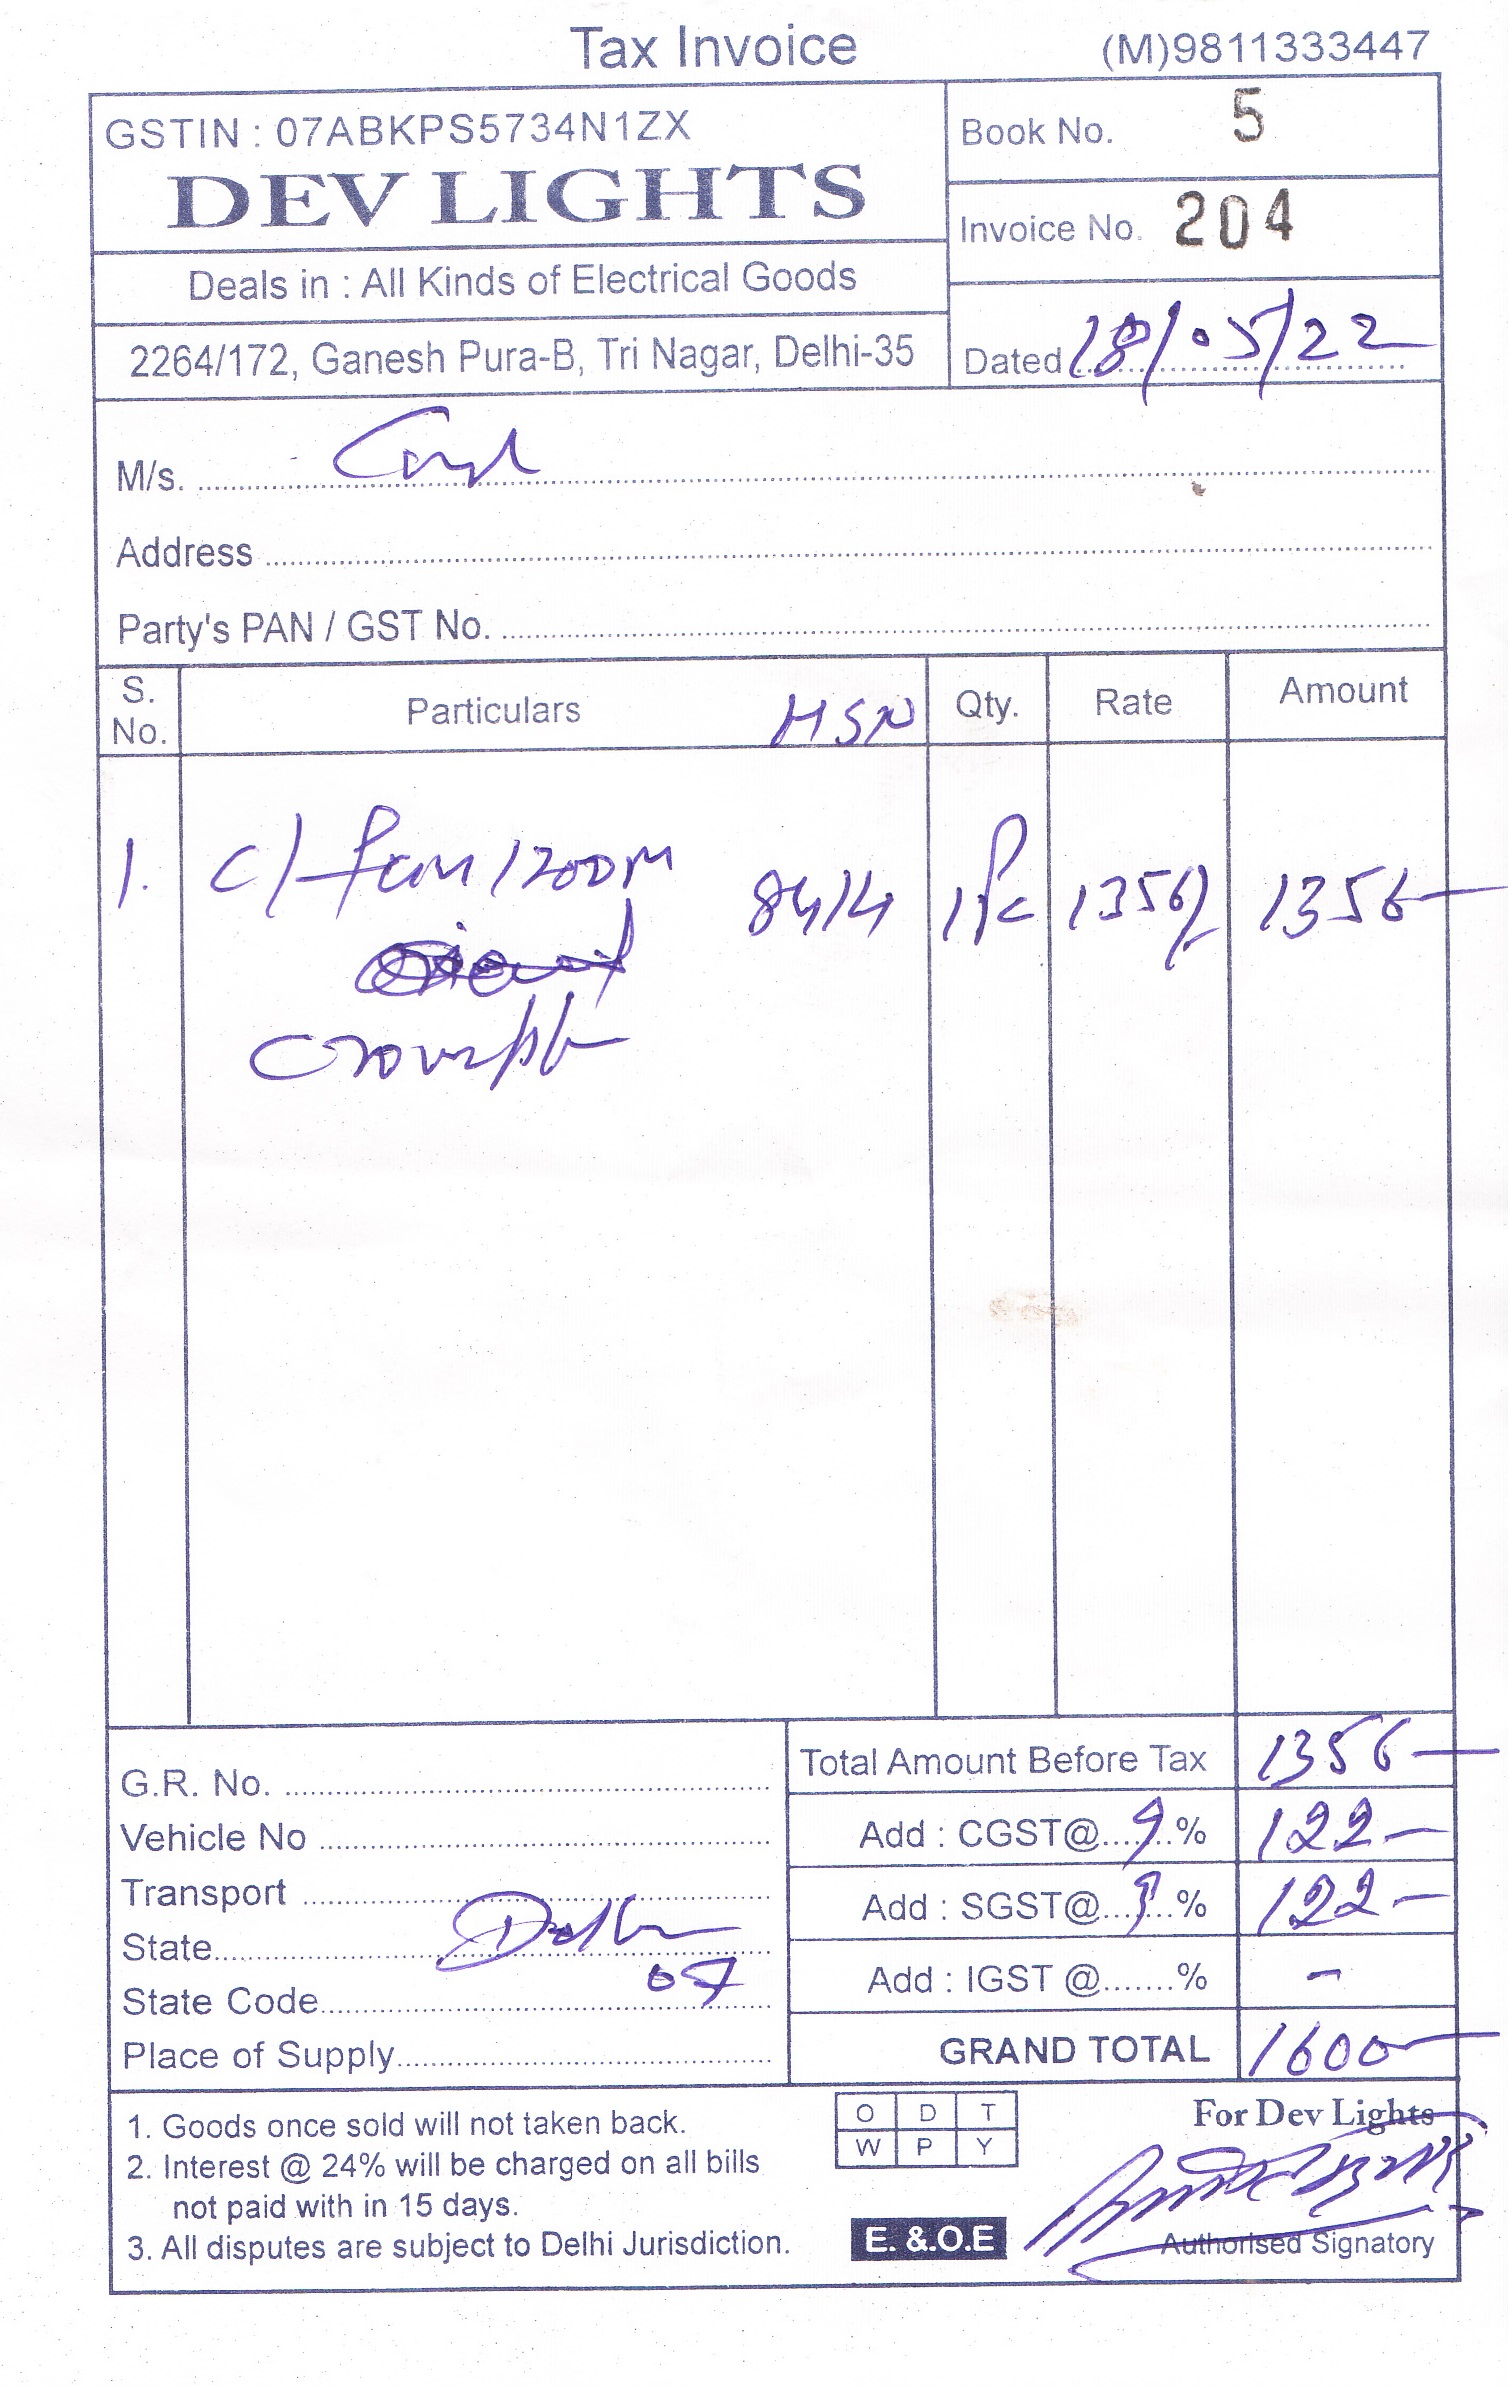 Tax Invoice (M)9811333447
GSTIN : 07ABKPS5734N1ZX
DEV LIGHTS
Deals in : All Kinds of Electrical Goods
2264/172, Ganesh Pura-B, Tri Nagar, Delhi-35
Book No. 5
Invoice No. 204
Dated 18/05/22
M/s. Cash
Address
Party's PAN / GST No.
S. No. Particulars HSN Qty. Rate Amount
1. C/fan 1200M 8414 1Pc 1356/ 1356-
G.R. No.
Vehicle No
Transport
State Delhi
State Code 07
Place of Supply
Total Amount Before Tax 1356-
Add : CGST@ 9 % 122-
Add : SGST@ 9 % 122-
Add : IGST @.......% -
GRAND TOTAL 1600-
1. Goods once sold will not taken back.
2. Interest @ 24% will be charged on all bills
not paid with in 15 days.
3. All disputes are subject to Delhi Jurisdiction.
O D T
W P Y
E. &.O.E
For Dev Lights
Authorised Signatory